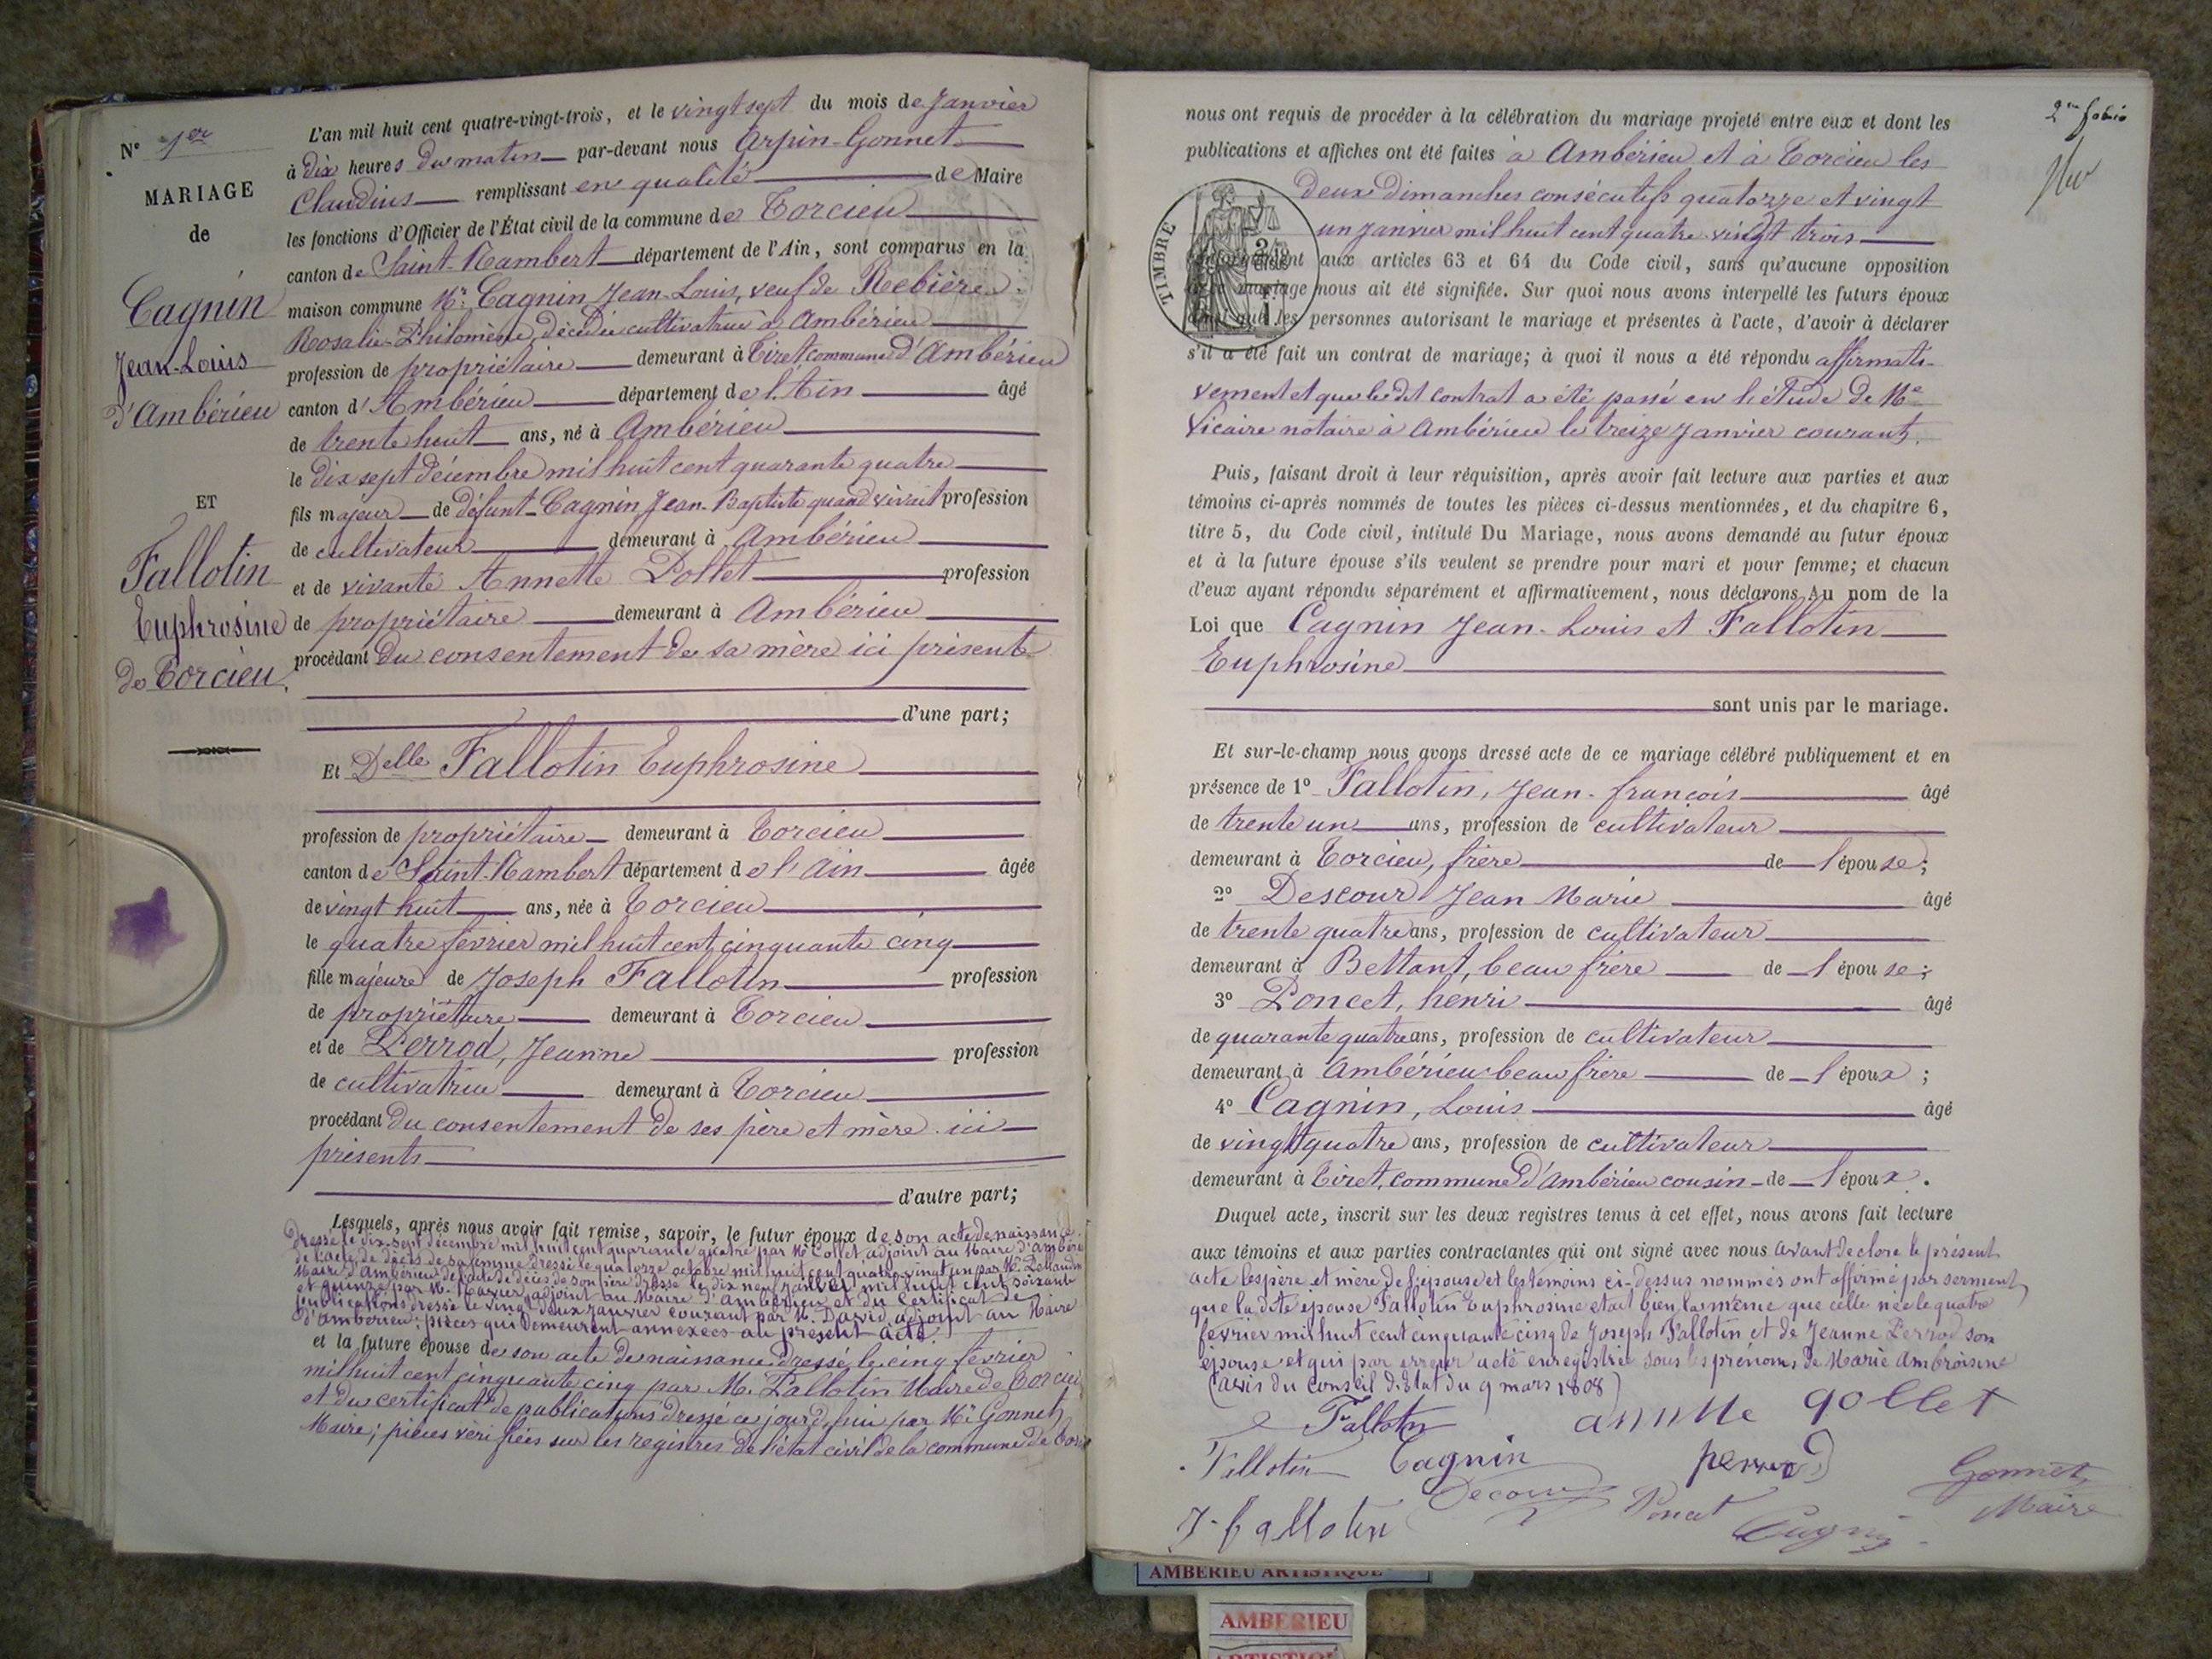 N° 1er
MARIAGE
de
Cagnin
Jean-Louis
d'Ambérieu
ET
Fallotin
Euphrosine
de Torcieu
L'an mil huit cent quatre-vingt-trois, et le vingt sept du mois de Janvier
à dix heures du matin par-devant nous Arpin-Gonnet
Claudius remplissant en qualité de Maire
les fonctions d'Officier de l'État civil de la commune de Torcieu
canton de Saint-Rambert département de l'Ain, sont comparus en la
maison commune Mr. Cagnin, Jean-Louis, veuf de Rebière
Rosalie-Philomène, décédée cultivatrice à Ambérieu
profession de propriétaire demeurant à Tiret commune d'Ambérieu
canton d'Ambérieu département de l'Ain âgé
de trente huit ans, né à Ambérieu
le dix sept décembre mil huit cent quarante quatre
fils majeur de défunt Cagnin Jean-Baptiste quand vivait profession
de cultivateur demeurant à Ambérieu
et de vivante Annette Pollet profession
de propriétaire demeurant à Ambérieu
procédant du consentement de sa mère ici présente
d'une part;
Et Delle Fallotin Euphrosine
profession de propriétaire demeurant à Torcieu
canton de Saint-Rambert département de l'Ain âgée
de vingt huit ans, née à Torcieu
le quatre février mil huit cent cinquante cinq
fille majeure de Joseph Fallotin profession
de propriétaire demeurant à Torcieu
et de Perrod, Jeanne profession
de cultivatrice demeurant à Torcieu
procédant du consentement de ses père et mère ici
présents
d'autre part;
Lesquels, après nous avoir fait remise, savoir, le futur époux de son acte de naissance
dressé le dix-sept décembre mil huit cent quarante quatre par Mr Collet adjoint au Maire d'Ambérieu
de l'acte de décès de sa femme dressé le quatorze octobre mil huit cent quatre vingt un par Mr.
Maire d'Ambérieu de l'acte de décès de son père dressé le dix neuf janvier mil huit cent soixante
et quinze par M. adjoint au Maire d'Ambérieu et du certificat de
publications dressé le vingt deux janvier courant par M. David adjoint au Maire
d'Ambérieu; pièces qui demeurent annexées au présent acte.
et la future épouse de son acte de naissance dressé le cinq février
mil huit cent cinquante cinq par M. Fallotin Maire de Torcieu
et du certificat de publications dressé ce jourd'hui par Mr Gonnet
Maire; pièces vérifiées sur les registres de l'état civil de la commune de
2me
nous ont requis de procéder à la célébration du mariage projeté entre eux et dont les
publications et affiches ont été faites à Ambérieu et à Torcieu les
deux Dimanches consécutifs quatorze et vingt
un janvier mil huit cent quatre vingt trois
TIMBRE
aux articles 63 et 64 du Code civil, sans qu'aucune opposition
mariage nous ait été signifiée. Sur quoi nous avons interpellé les futurs époux
que les personnes autorisant le mariage et présentes à l'acte, d'avoir à déclarer
s'il a été fait un contrat de mariage; à quoi il nous a été répondu affirmati-
vement et que ledit contrat a été passé en l'étude de Me
Vicaire notaire à Ambérieu le treize janvier courant.
Puis, faisant droit à leur réquisition, après avoir fait lecture aux parties et aux
témoins ci-après nommés de toutes les pièces ci-dessus mentionnées, et du chapitre 6,
titre 5, du Code civil, intitulé Du Mariage, nous avons demandé au futur époux
et à la future épouse s'ils veulent se prendre pour mari et pour femme; et chacun
d'eux ayant répondu séparément et affirmativement, nous déclarons Au nom de la
Loi que Cagnin Jean-Louis et Fallotin
Euphrosine
sont unis par le mariage.
Et sur-le-champ nous avons dressé acte de ce mariage célébré publiquement et en
présence de 1° Fallotin, Jean-françois âgé
de trente un ans, profession de cultivateur
demeurant à Torcieu, frère de l'épouse;
2° Descour Jean Marie âgé
de trente quatre ans, profession de cultivateur
demeurant à Bettant, beau frère de l'épouse;
3° Poncet, henri âgé
de quarante quatre ans, profession de cultivateur
demeurant à Ambérieu beau frère de l'époux;
4° Cagnin, Louis âgé
de vingt quatre ans, profession de cultivateur
demeurant à Tiret, commune d'Ambérieu cousin de l'époux.
Duquel acte, inscrit sur les deux registres tenus à cet effet, nous avons fait lecture
aux témoins et aux parties contractantes qui ont signé avec nous avant de clore le présent
acte les père et mère de l'épouse et les témoins ci-dessus nommés ont affirmé par serment
que la dite épouse Fallotin Euphrosine était bien la même que celle née le quatre
février mil huit cent cinquante cinq de Joseph Fallotin et de Jeanne Perrod son
épouse et qui par erreur a été enregistrée sous les prénoms de Marie Ambroisine
(avis du Conseil d'Etat du 9 mars 1808)
e Fallotin annette pollet
Fallotin Cagnin perrod Gonnet
Decour Poncet Maire
J-f allotin Cagnin
AMBERIEU ARTISTIQUE
AMBERIEU
ARTISTIQUE